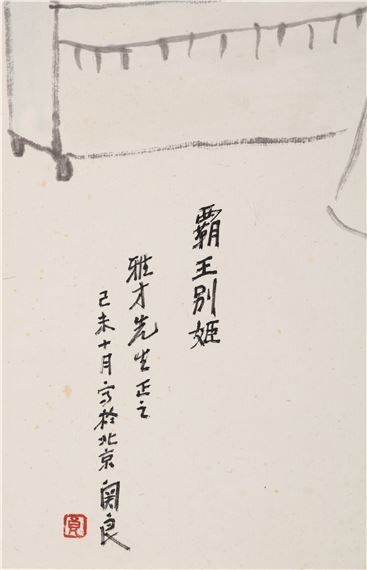 霸王别姬
雅才先生正之
己未十月写於北京 关良